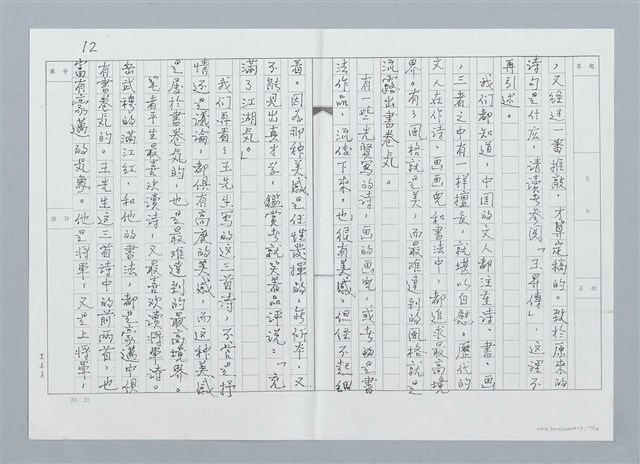 12
，又經過一番推敲，才算定稿的。致於原來的
詩句是什広，請讀者參閱「王昇傳」，這裡不
再引述。
我们都知道，中囯的文人都注重詩、書、画
，三者之中有一樣擅長，就堪以自慰。歷代的
文人在作詩、画画児和書法中，都追求最高境
界。有了風格就是美，而最难達到的風格就是
流露出書卷気。
有一些先賢寫的詩、画的画児，或者的是書
法作品，流傳下來，也很有美感。但经不起細
看。因为那种美感是任性发揮的，
不能見出真才学，鑑赏者就笑着品評説：「充
滿了江湖気。」
我们再看看王先生寫的这三首詩，不管是抒
情还是議論，都俱有高度的美感，而这种美感
是属於書卷気的，也是最难達到的最高境界。
笔者平生最喜次讀詩，又最喜欢讀將軍詩。
岳武穆的滿江紅，和他的書法，都是豪邁中俱
有書卷気的。王先生这三首詩中的前两首，也
富有豪邁的気象。他是將軍，又是上將軍，
20×20